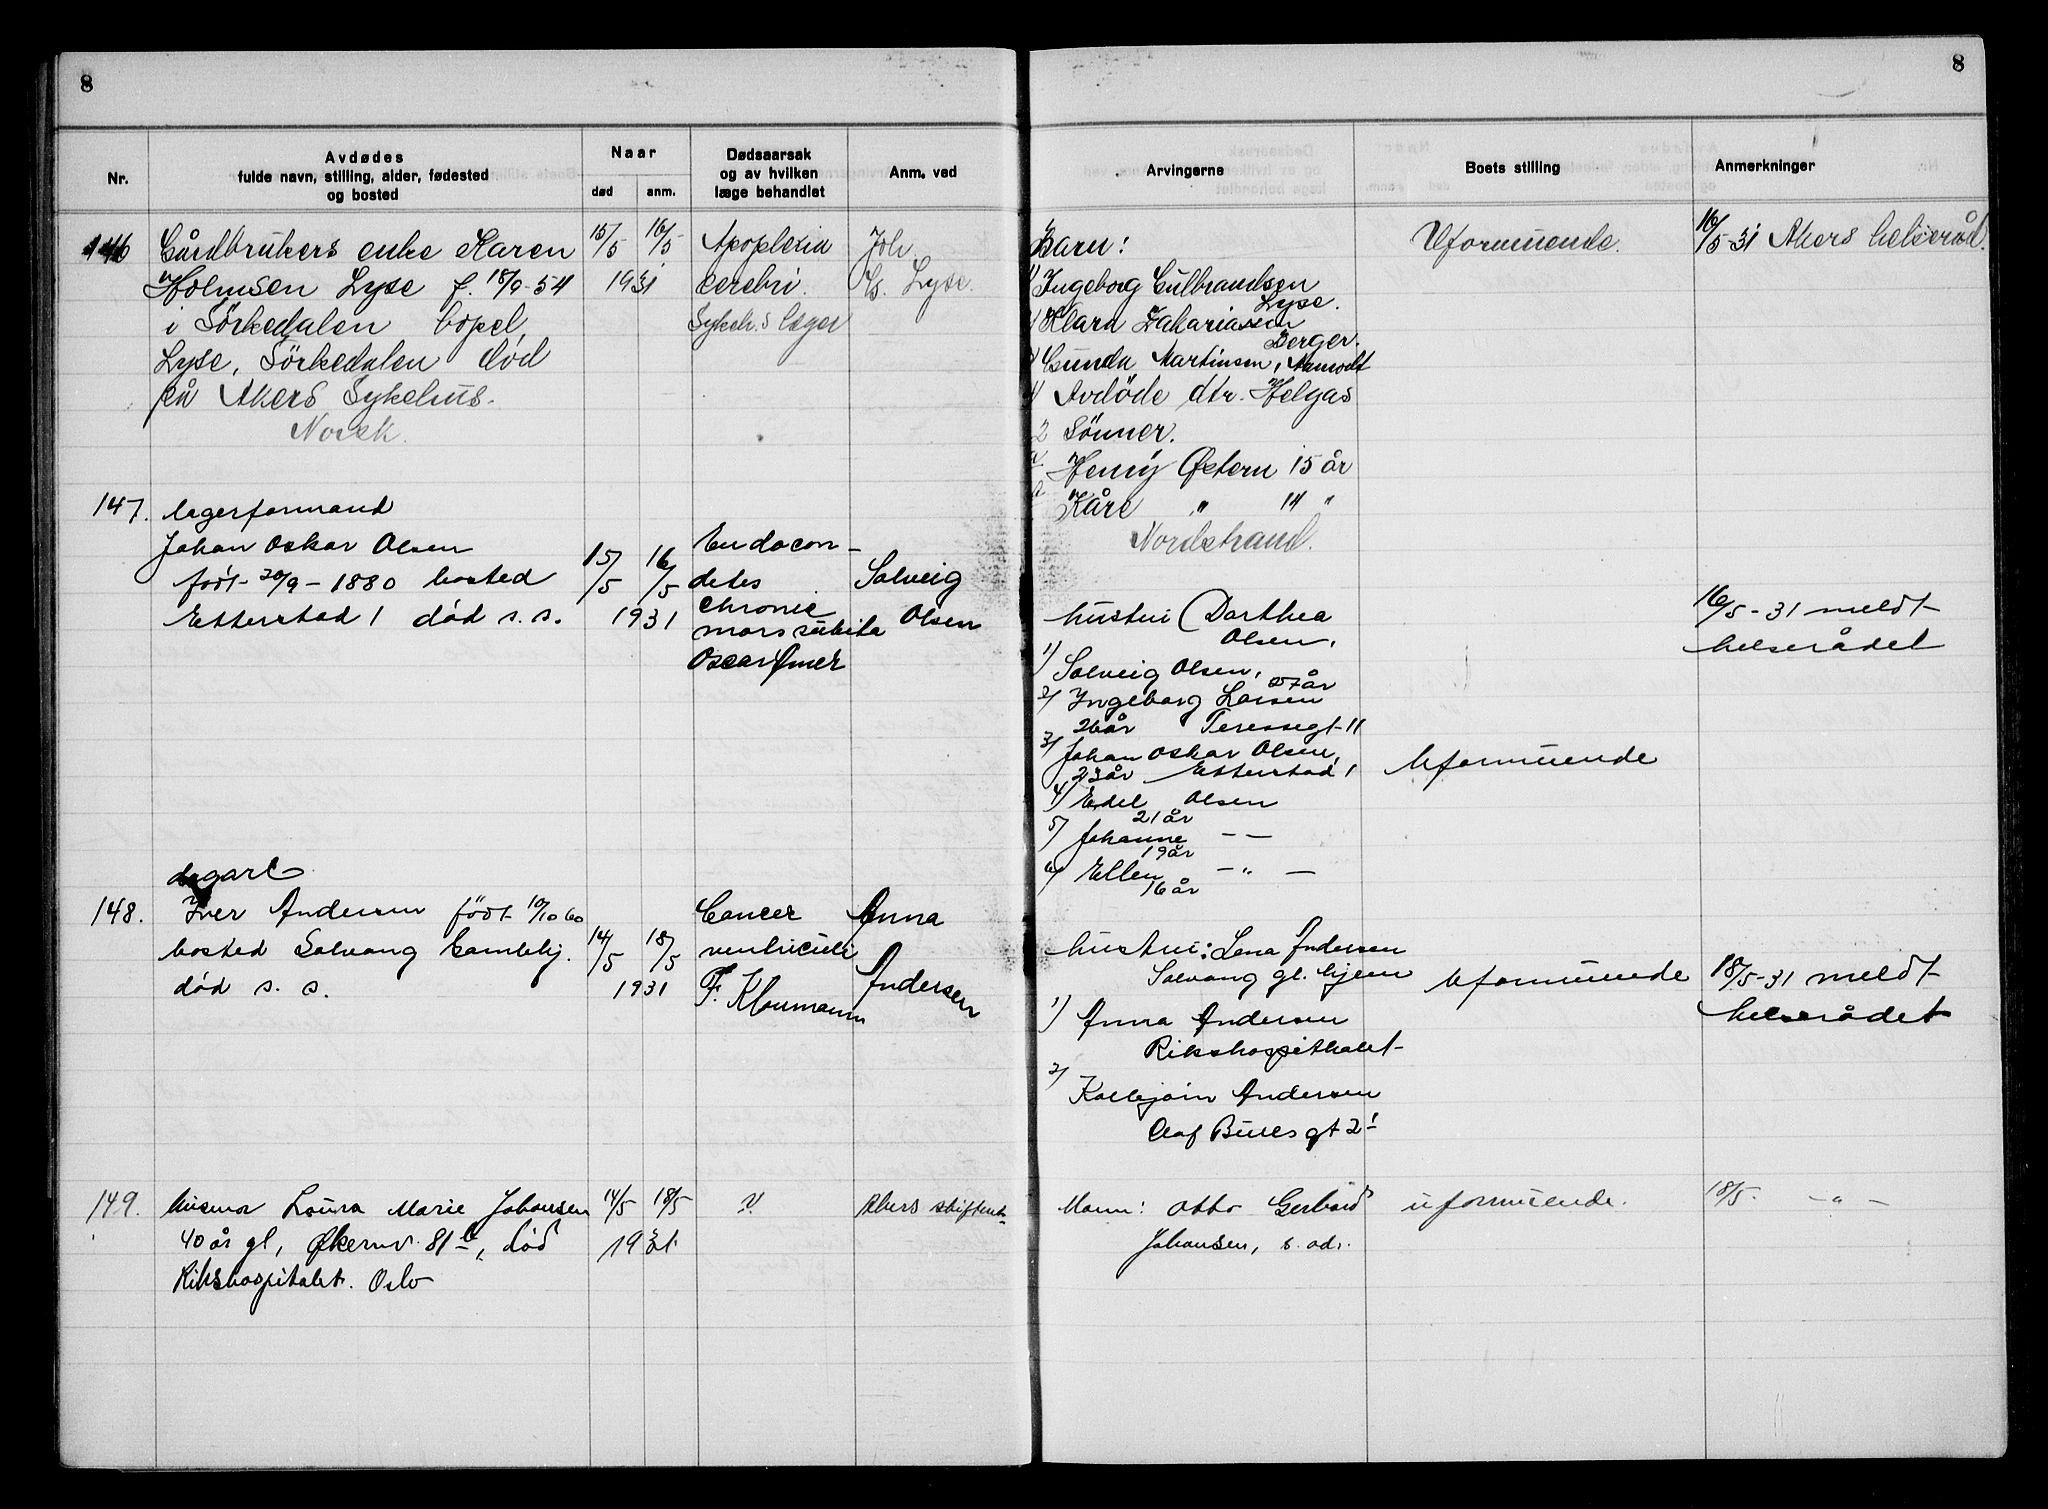 8
8
Nr.
Avdødes
fulde navn, stilling, alder, fødested
og bosted
Naar
død
anm.
Dødsaarsak
og av hvilken
læge behandlet
Anm. ved
Arvingerne
Boets stilling
Anmerkninger
146
Gårdbrukers enke Karen
Holmsen Lyse f. 18/9-54
i Sörkedalen bopel
Lyse, Sörkedalen död
på Akers Sykehus.
Norsk.
15/5 16/5
1931
Apoplexia
cerebri.
Sykeh.s læger
Joh.
Lyse.
Barn:
1) Ingeborg Gulbrandsen
Lyse.
2) Klara Zakariassen
Berger.
3) Gunda Martinsen, Aamodt
4) Avdöde dtr. Helgas
2 Sönner.
Henry Østern 15 år
Kåre " 14 "
Nordstrand.
Uformuende.
16/5-31 Akers helseråd.
147.
lagerformand
Johan Oskar Olsen
födt 20/9-1880 bosted
Etterstad 1 död s. s.
15/5 16/5
1931
Endocar-
dites
chronic
mors subita
Oscar Omer
Solveig
Olsen
hustru Dorthea
Olsen,
1) Solveig Olsen,
27 år
2) Ingeborg Larsen
26 år Teressegt 11
3) Johan Oskar Olsen,
23 år Etterstad 1
4) Edel Olsen
21 år
5) Johanne — —
19 år
6) Ellen — " —
16 år
Uformuende
16/5-31 meldt
helserådet
148.
Iver Andersen födt 10/10 60
bosted Solvang Gamlehj.
död s. s.
14/5 18/5
1931
Cancer
ventriculi
F. Kloumann
Anna
Andersen
hustru: Lena Andersen
Solvang gl. hjem
1) Anna Andersen
Rikshospithalet
2) Kolbjørn Andersen
Olaf Bulls gt 2
Uformuende
18/5-31 meldt
helserådet
149.
husmor Laura Marie Johansen
40 år gl, Økernv. 81, död
Rikshospitalet. Oslo
14/5 18/5
1931
?
Akers skifterett
Mann: Otto Gerhard
Johansen, s. adr.
uformuende.
18/5. — " —